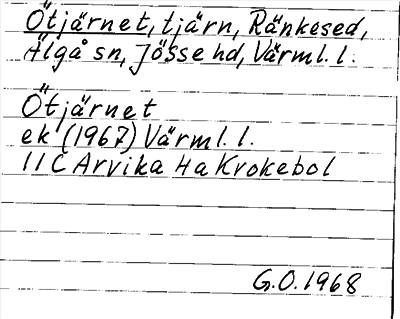 Ötjärnet, tjärn, Ränkesed,
Älgå sn, Jösse hd, Värml. l.
Ötjärnet
ek (1967) Värml. l.
11C Arvika Ha Krokebol
G.O. 1968